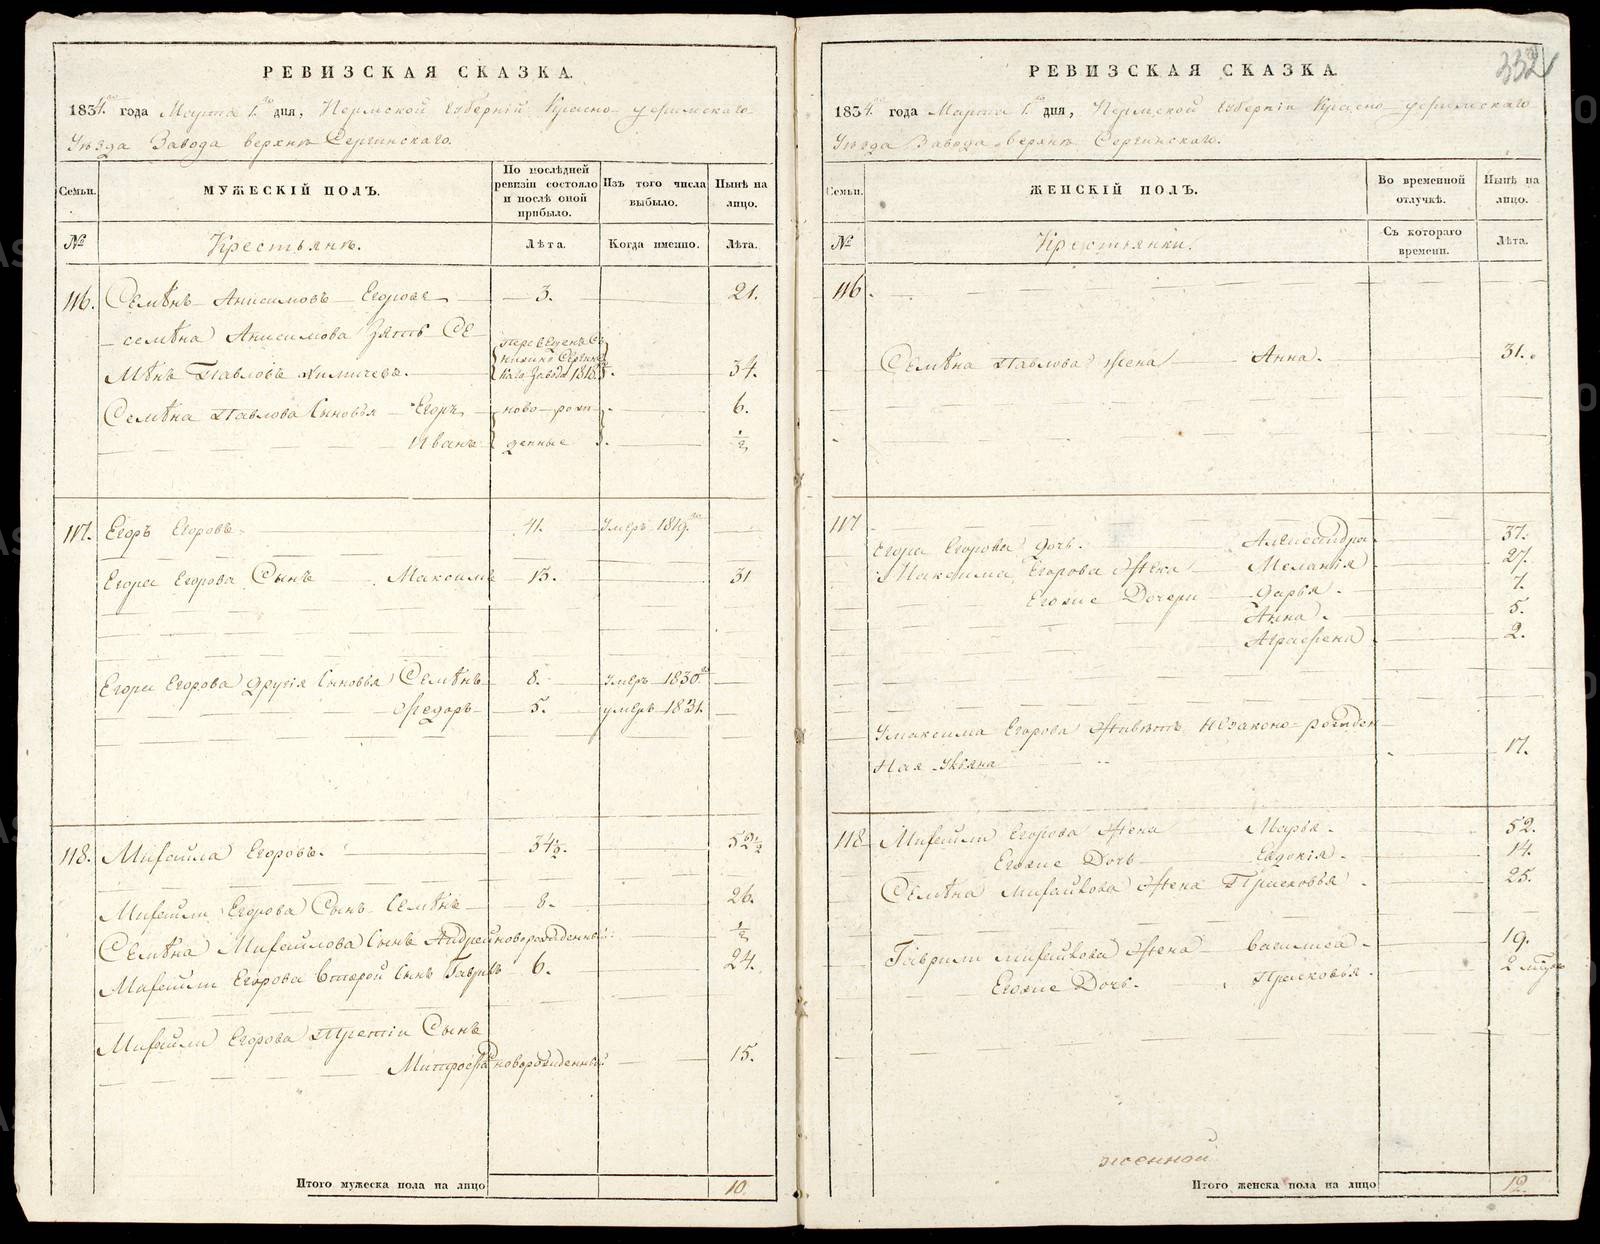 РЕВИЗСКАЯ СКАЗКА.
1834 года Марта 1 дня, Пермской Губерніи Красно уфимскаго
Уѣзда Завода верхнъ Сергинскаго.
Семьи.
МУЖЕСКІЙ ПОЛЪ.
По послѣдней ревизіи состояло и послѣ оной прибыло.
Изъ того числа выбыло.
Нынѣ на лицо.
№
Крестьянъ.
Лѣта.
Когда именно.
Лѣта.
116. Семѣнъ Анисимовъ Егоровъ 3. 21.
семѣна Анисимова Зять Се
Мѣнъ Павловъ 34.
Семѣна Павлова Сыновья Егоръ ново рож 6.
Иванъ денные ½
117. Егоръ Егоровъ 41. умеръ 1819.го
Егора Егорова Сынъ Максимъ 13. 31
Егора Егорова другія Сыновья Семѣнъ 8. умеръ 1830го
Федоръ 5. умеръ 1831.
118. Михайла Егоровъ. 34½. 52½
Михайлы Егорова Сынъ Семѣнъ 8. 26.
Семѣна Михайлова Сынъ Андрей новорожденный ½
Михайлы Егорова Второй Сынъ Гаврилъ 6. 24.
Михайлы Егорова Третіи Сынъ
Митрофанъ новорожденный 15.
Итого мужеска пола на лицо 10.
332
РЕВИЗСКАЯ СКАЗКА.
1834 года Марта 1 дня, Пермской Губерніи Красно уфимскаго
Уѣзда Завода верхнъ Сергинскаго.
Семьи.
ЖЕНСКІЙ ПОЛЪ.
Во временной отлучкѣ.
Нынѣ на лицо.
№
Крестьянки.
Съ котораго времени.
Лѣта.
116.
Семѣна Павлова жена Анна. 31.
117
Егора Егорова дочь. Александра 37.
Максима Егорова Жена Меланія 27.
Егожие Дочери Дарья. 7.
Анна. 5.
Аграфена 2.
Умаксима Егорова Живетъ Незаконо рожден
Ная Ульяна 17.
118 Михайлы Егорова Жена Марья. 52.
Егожие Дочь Евдокія. 14.
Семѣна Михайлова Жена Прасковья 25.
Гаврилы михайлова Жена Василиса 19.
Егожие Дочь. Прасковья. 2
Итого женска пола на лицо 12.